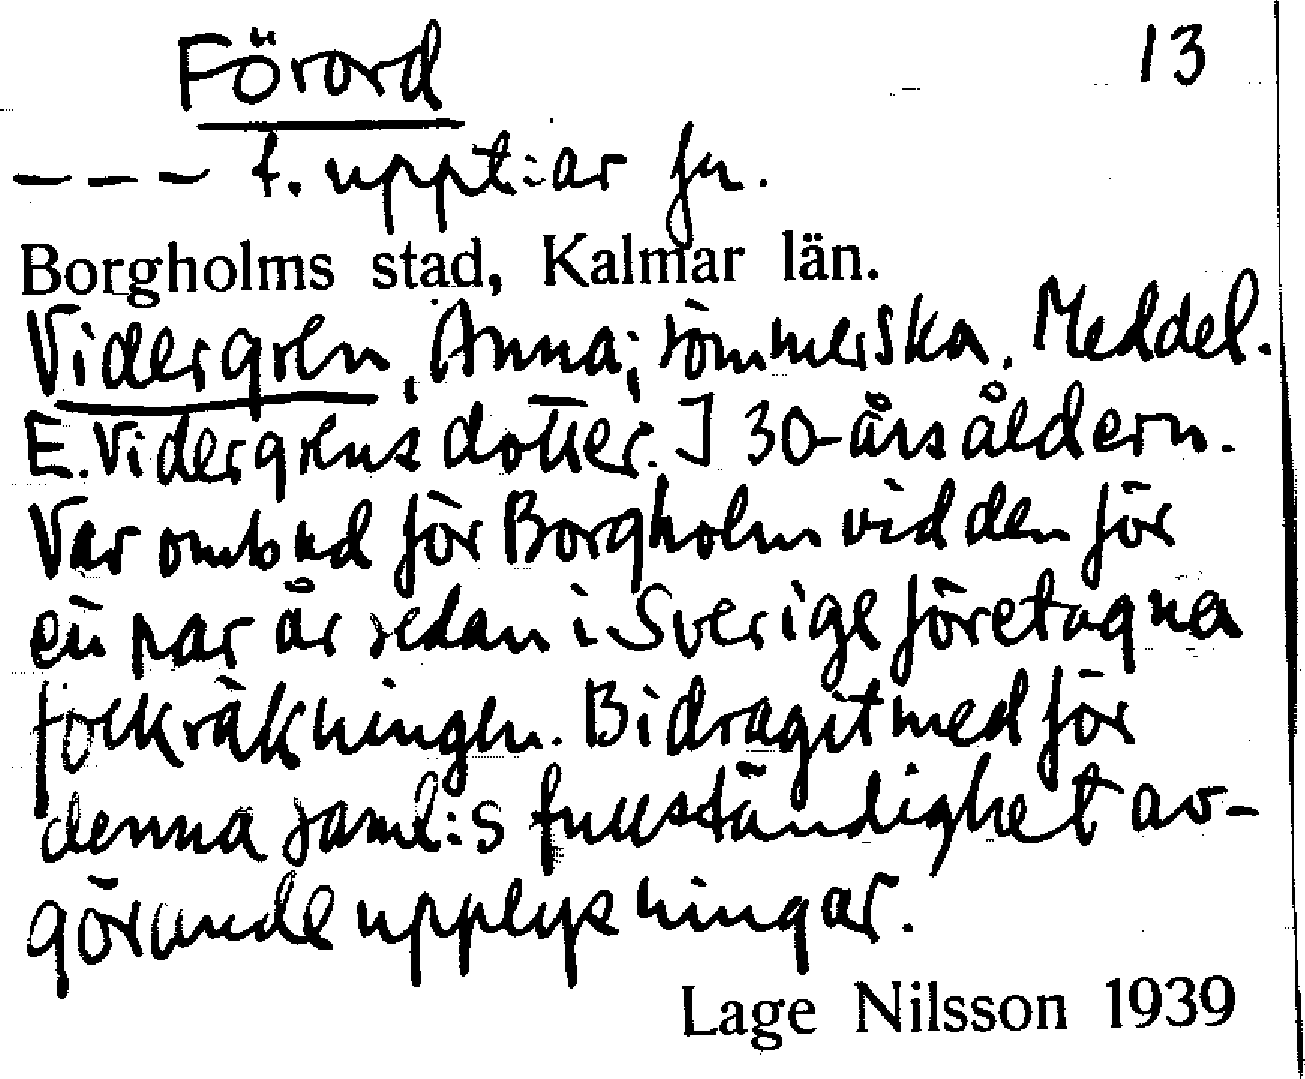 Förord 13
--- f. uppt:ar fr.
Borgholms stad, Kalmar län.
Vidergren, Anna; sömmerska. Meddel.
E. Vidergrens dotter. I 30-årsåldern.
Var ombud för Borgholm vid den för
ett par år sedan i Sverige företagna
folkräkningen. Bidragit med för
denna saml:s fullständighet av-
görande upplysningar.
Lage Nilsson 1939